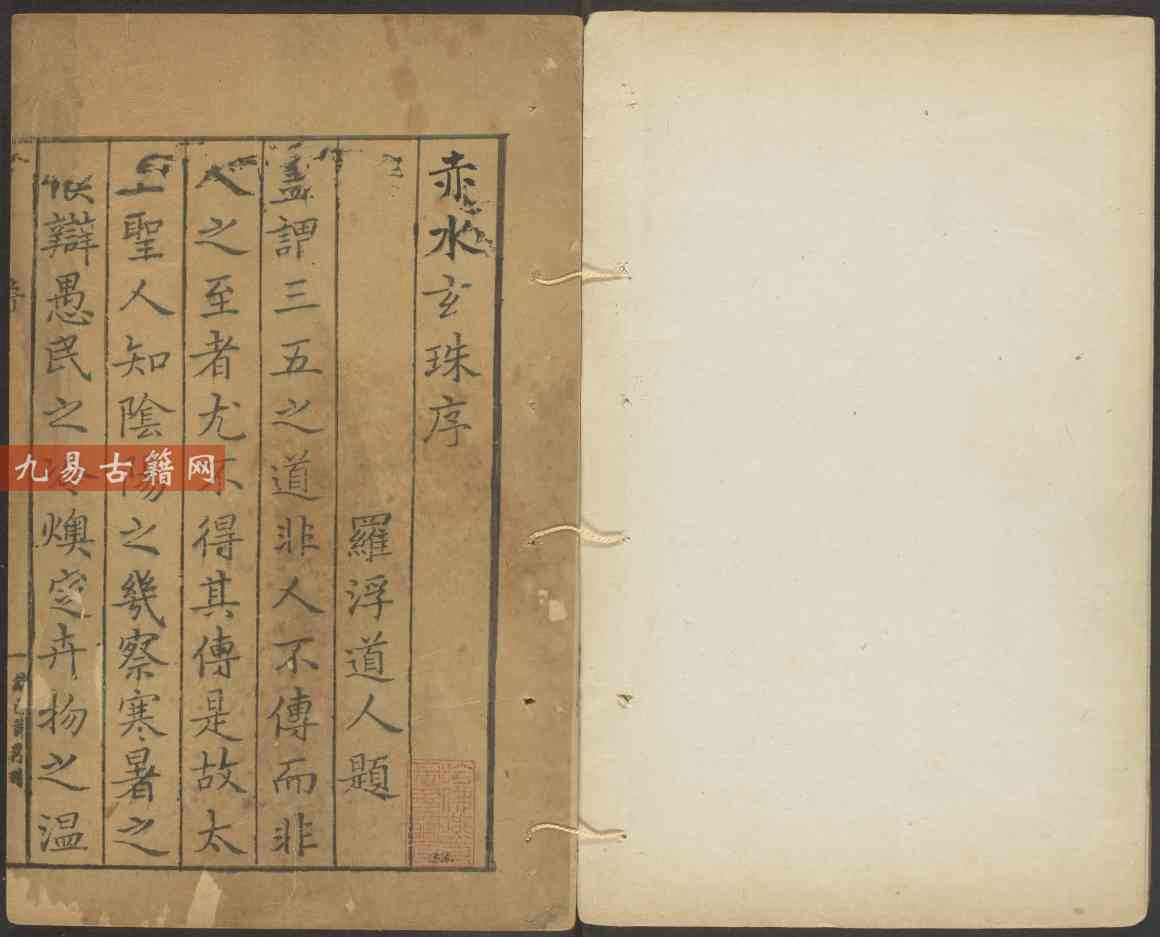 赤水玄珠序
羅浮道人題
盖謂三五之道非人不傳而非
人之至者尤不得其傳是故太
上聖人知陰陽之幾察寒暑之
辯愚民之燠定卉物之温
九易古籍网